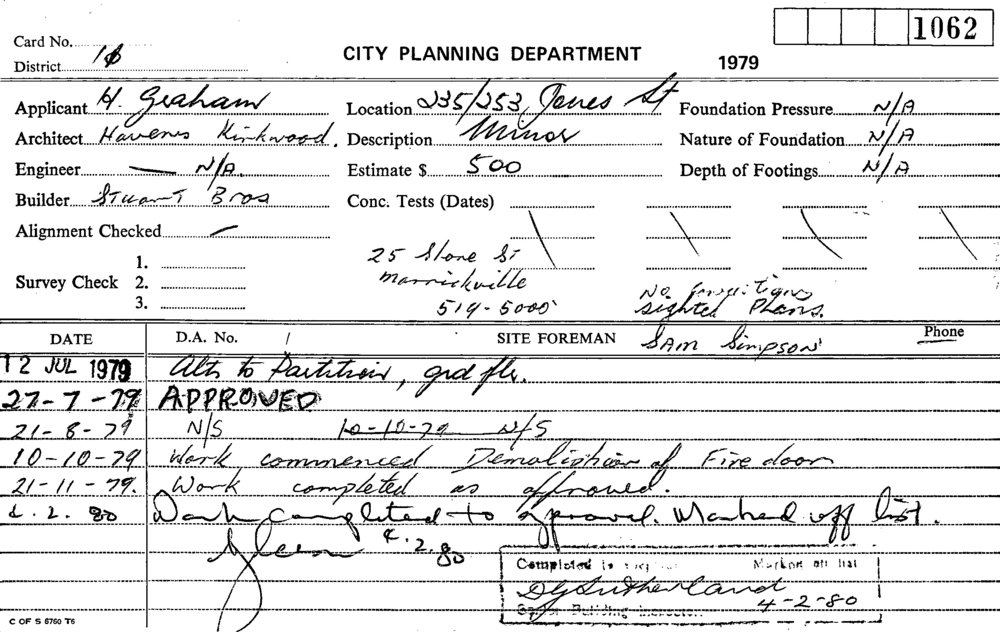 1062
Card No.
CITY PLANNING DEPARTMENT
District 1
1979
Applicant H. Graham Location 235/253, Jones St Foundation Pressure N/A
Architect Havens Kirkwood. Description Minor Nature of Foundation N/A
Engineer — N/A. Estimate $ 500 Depth of Footings N/A
Builder Stuart Bros Conc. Tests (Dates)
Alignment Checked
25 Stone St
Survey Check 1.
2.
3.
Marrickville
519-5000
No
sighted Plans.
DATE D.A. No. SITE FOREMAN Sam Simpson Phone
12 JUL 1979 Alts to Partition, grd flr.
27-7-79 APPROVED
21-8-79 N/S 10-10-79 N/S
10-10-79 Work commenced Demolition of Fire door
21-11-79. Work completed as approved.
4. 2. 80 Work completed to approval. Marked off list.
4.2.80
Completed to Marked off list
D G Sutherland
4-2-80
Senior Building Inspector
C OF S 6760 T6